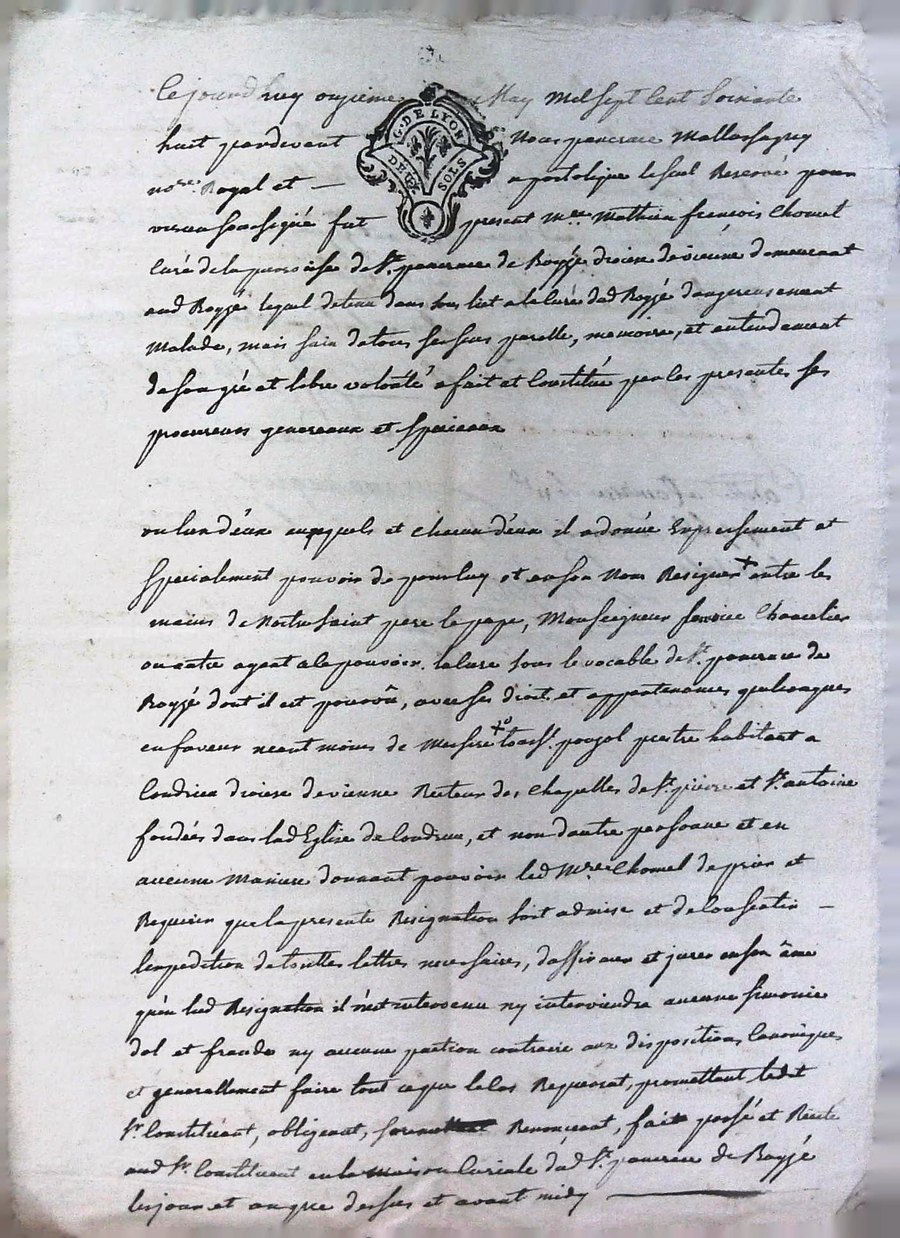 Ce jourd'huy onzieme May Mil sept Cent Soixante
huit pardevant Nous pancrace Mallassagny
G. DE LYON
DEUX SOLS
nore. Royal et — apostolique le seel Reservé pour
vienne soussigné fut present mre. Mathieu françois Chomel
Curé de la paroisse de St. pancrace de Royzé diocese de vienne demeurant
aud Royzé lequel detenu dans son lict a la Cure dud Royzé dangereusement
Malade, mais sain de tous ses sens parolle, memoire, et entendement
de son gré et libre volonté a fait et Constitué par les presentes ses
procureurs generaux et speciaux
ou l'un d'eux auxquels et chacun d'eux il a donné Expressement et
specialement pouvoir de pour luy et en son Nom Resigner + entre les
mains de Notre saint pere le pape, Monseigneur son vice Chancelier
ou autre ayant a ce pouvoir. la Cure sous le vocable de St. pancrace de
Royzé dont il est pourvû, avec ses droits et appartenances quelconques
en faveur neant moins de Messire + pozol prestre habitant a
Condrieu diocese de vienne Recteur des Chapelles de St. pierre et St. antoine
fondées dans lad Eglise de Condrieu, et non d'autre personne et en
aucune Maniere donnant pouvoir led Mre. Chomel de prier et
Requerir que la presente Resignation soit admise et de Consentir —
l'expedition de touttes lettres necessaires, d'affirmer et jurer en son âme
qu'en lad Resignation il n'est intervenu ny interviendra aucune simonie
dol et fraude ny aucune paction contraire aux dispositions Canoniques
et generallement faire tout ce que le Cas Requerrat, promettant ledt
Sr. Constituant, obligeant, Renonceant, fait passé et Recité
aud Sr. Constituant en la maison Curiale dud St. pancrace de Royzé
les jour et an que dessus et avant midy